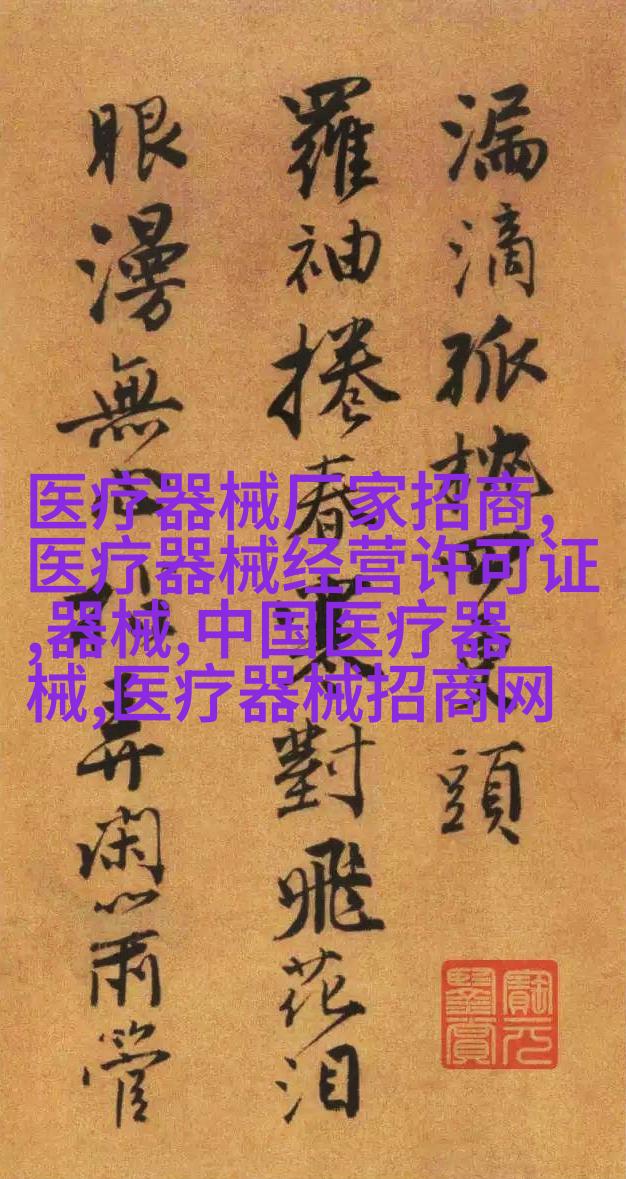 漏滴孤枕可頭
羅袖捲春寒對飛花泪
眼漫無弄閑心管
医疗器械厂家招商,
医疗器械经营许可证
,器械,中国医疗器
械,医疗器械招商网